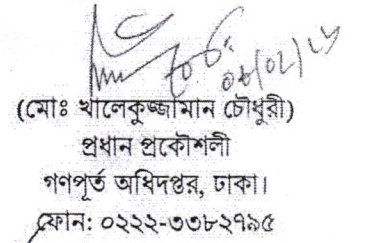 (মোঃ খালেকুজ্জামান চৌধুরী)
প্রধান প্রকৌশলী
গণপূর্ত অধিদপ্তর, ঢাকা।
ফোন: ০২২২-৩৩৮২৭৯৫